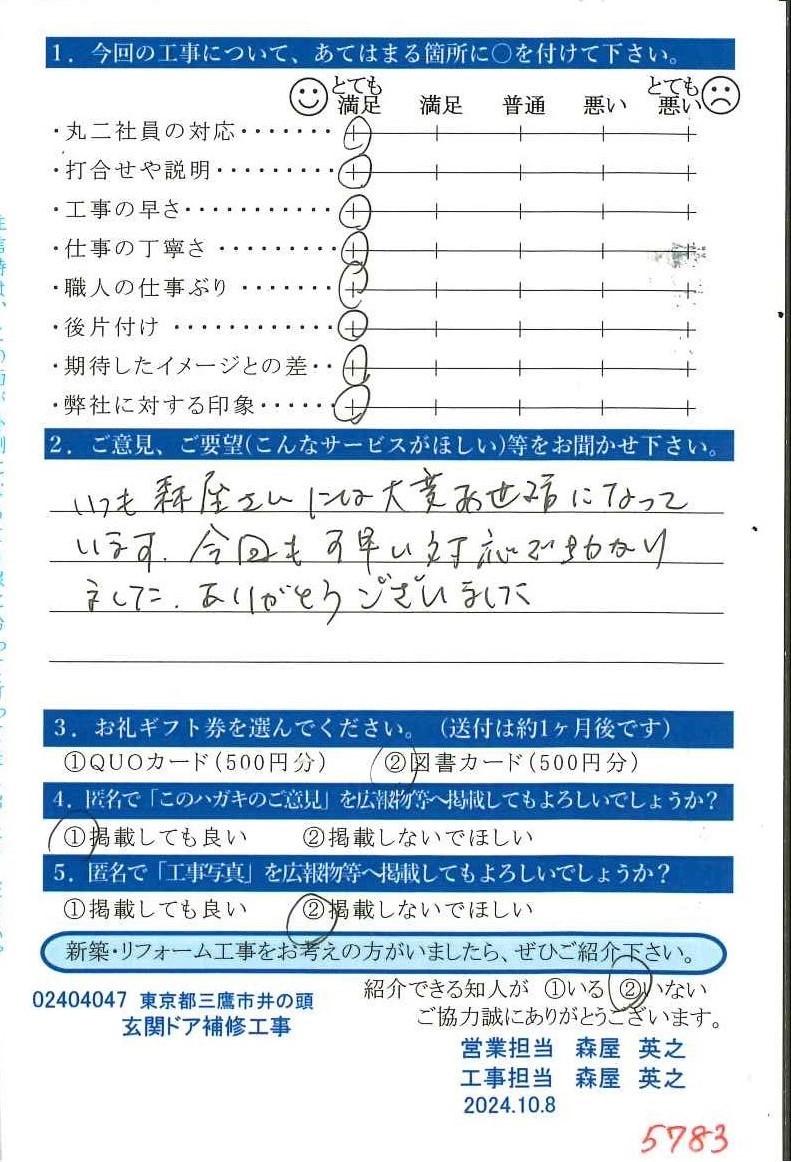 1．今回の工事について、あてはまる箇所に○を付けて下さい。
とても満足 満足 普通 悪い とても悪い
・丸二社員の対応・・・・・・・
・打合せや説明・・・・・・・・・
・工事の早さ・・・・・・・・・・・
・仕事の丁寧さ・・・・・・・・・
・職人の仕事ぶり・・・・・・・
・後片付け・・・・・・・・・・・・
・期待したイメージとの差・・
・弊社に対する印象・・・・・・
2．ご意見、ご要望(こんなサービスがほしい)等をお聞かせ下さい。
いつも森屋さんには大変お世話になって
います。今回も す早い対応で助かり
ました。ありがとうございました
3．お礼ギフト券を選んでください。（送付は約1ヶ月後です）
①QUOカード（500円分） ②図書カード（500円分）
4．匿名で「このハガキのご意見」を広報物等へ掲載してもよろしいでしょうか？
①掲載しても良い ②掲載しないでほしい
5．匿名で「工事写真」を広報物等へ掲載してもよろしいでしょうか？
①掲載しても良い ②掲載しないでほしい
新築・リフォーム工事をお考えの方がいましたら、ぜひご紹介下さい。
紹介できる知人が ①いる ②いない
ご協力誠にありがとうございます。
02404047 東京都三鷹市井の頭
玄関ドア補修工事
営業担当 森屋 英之
工事担当 森屋 英之
2024.10.8
5783